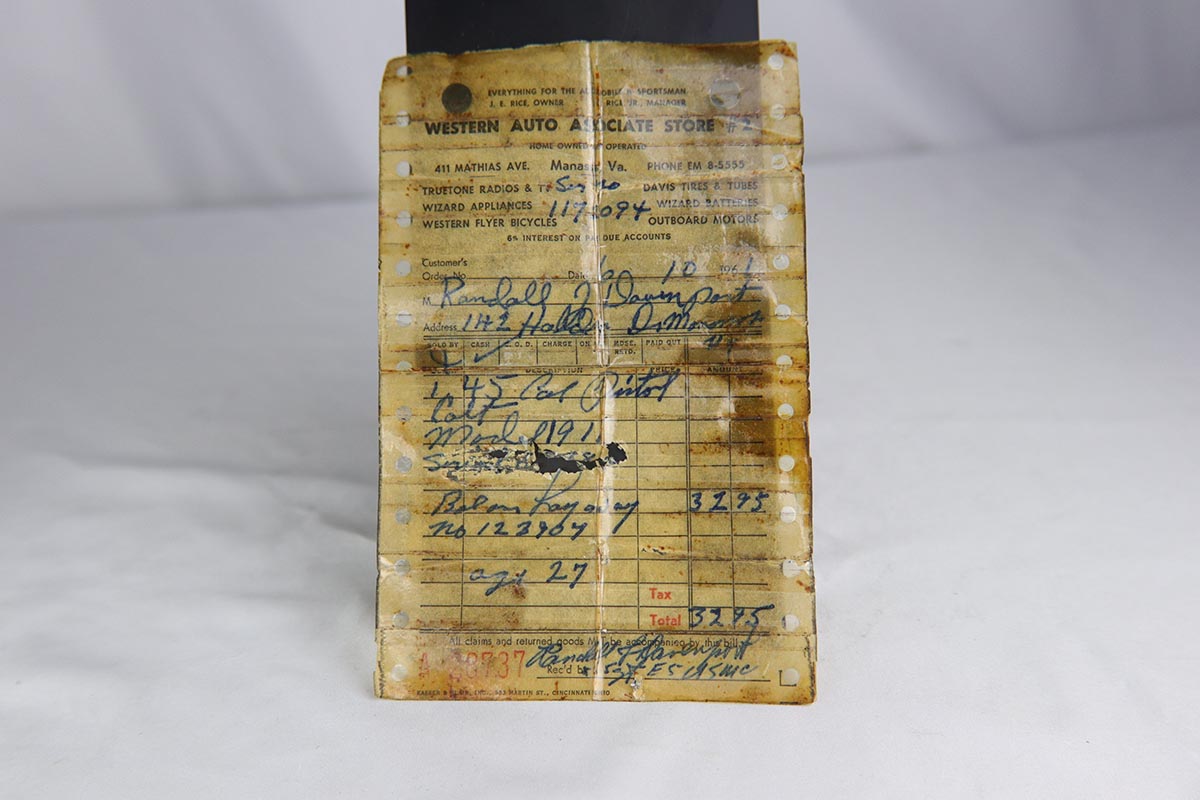 EVERYTHING FOR THE AUTOMOBILE & SPORTSMAN
J. E. RICE, OWNER RICE JR., MANAGER
WESTERN AUTO ASSOCIATE STORE #2
HOME OWNED OPERATED
411 MATHIAS AVE. Manas Va. PHONE EM 8-5555
TRUETONE RADIOS & T DAVIS TIRES & TUBES
WIZARD APPLIANCES 1192094 WIZARD BATTERIES
WESTERN FLYER BICYCLES OUTBOARD MOTORS
6% INTEREST ON PAST DUE ACCOUNTS
Customer's
Order No. Date 6 10 1961
M Randall J Davenport
Address 142 Dr
SOLD BY CASH C.O.D. CHARGE ON MDSE. RETD. PAID OUT
DESCRIPTION PRICE AMOUNT
1 45 Cal Pistol
Colt
Model 1911
32 95
No 123907
age 27
Tax
Total 32 95
All claims and returned goods MUST be accompanied by this bill
737 Randall J Davenport
Rec'd by Sgt E5 USMC
INC., MARTIN ST., CINCINNATI OHIO